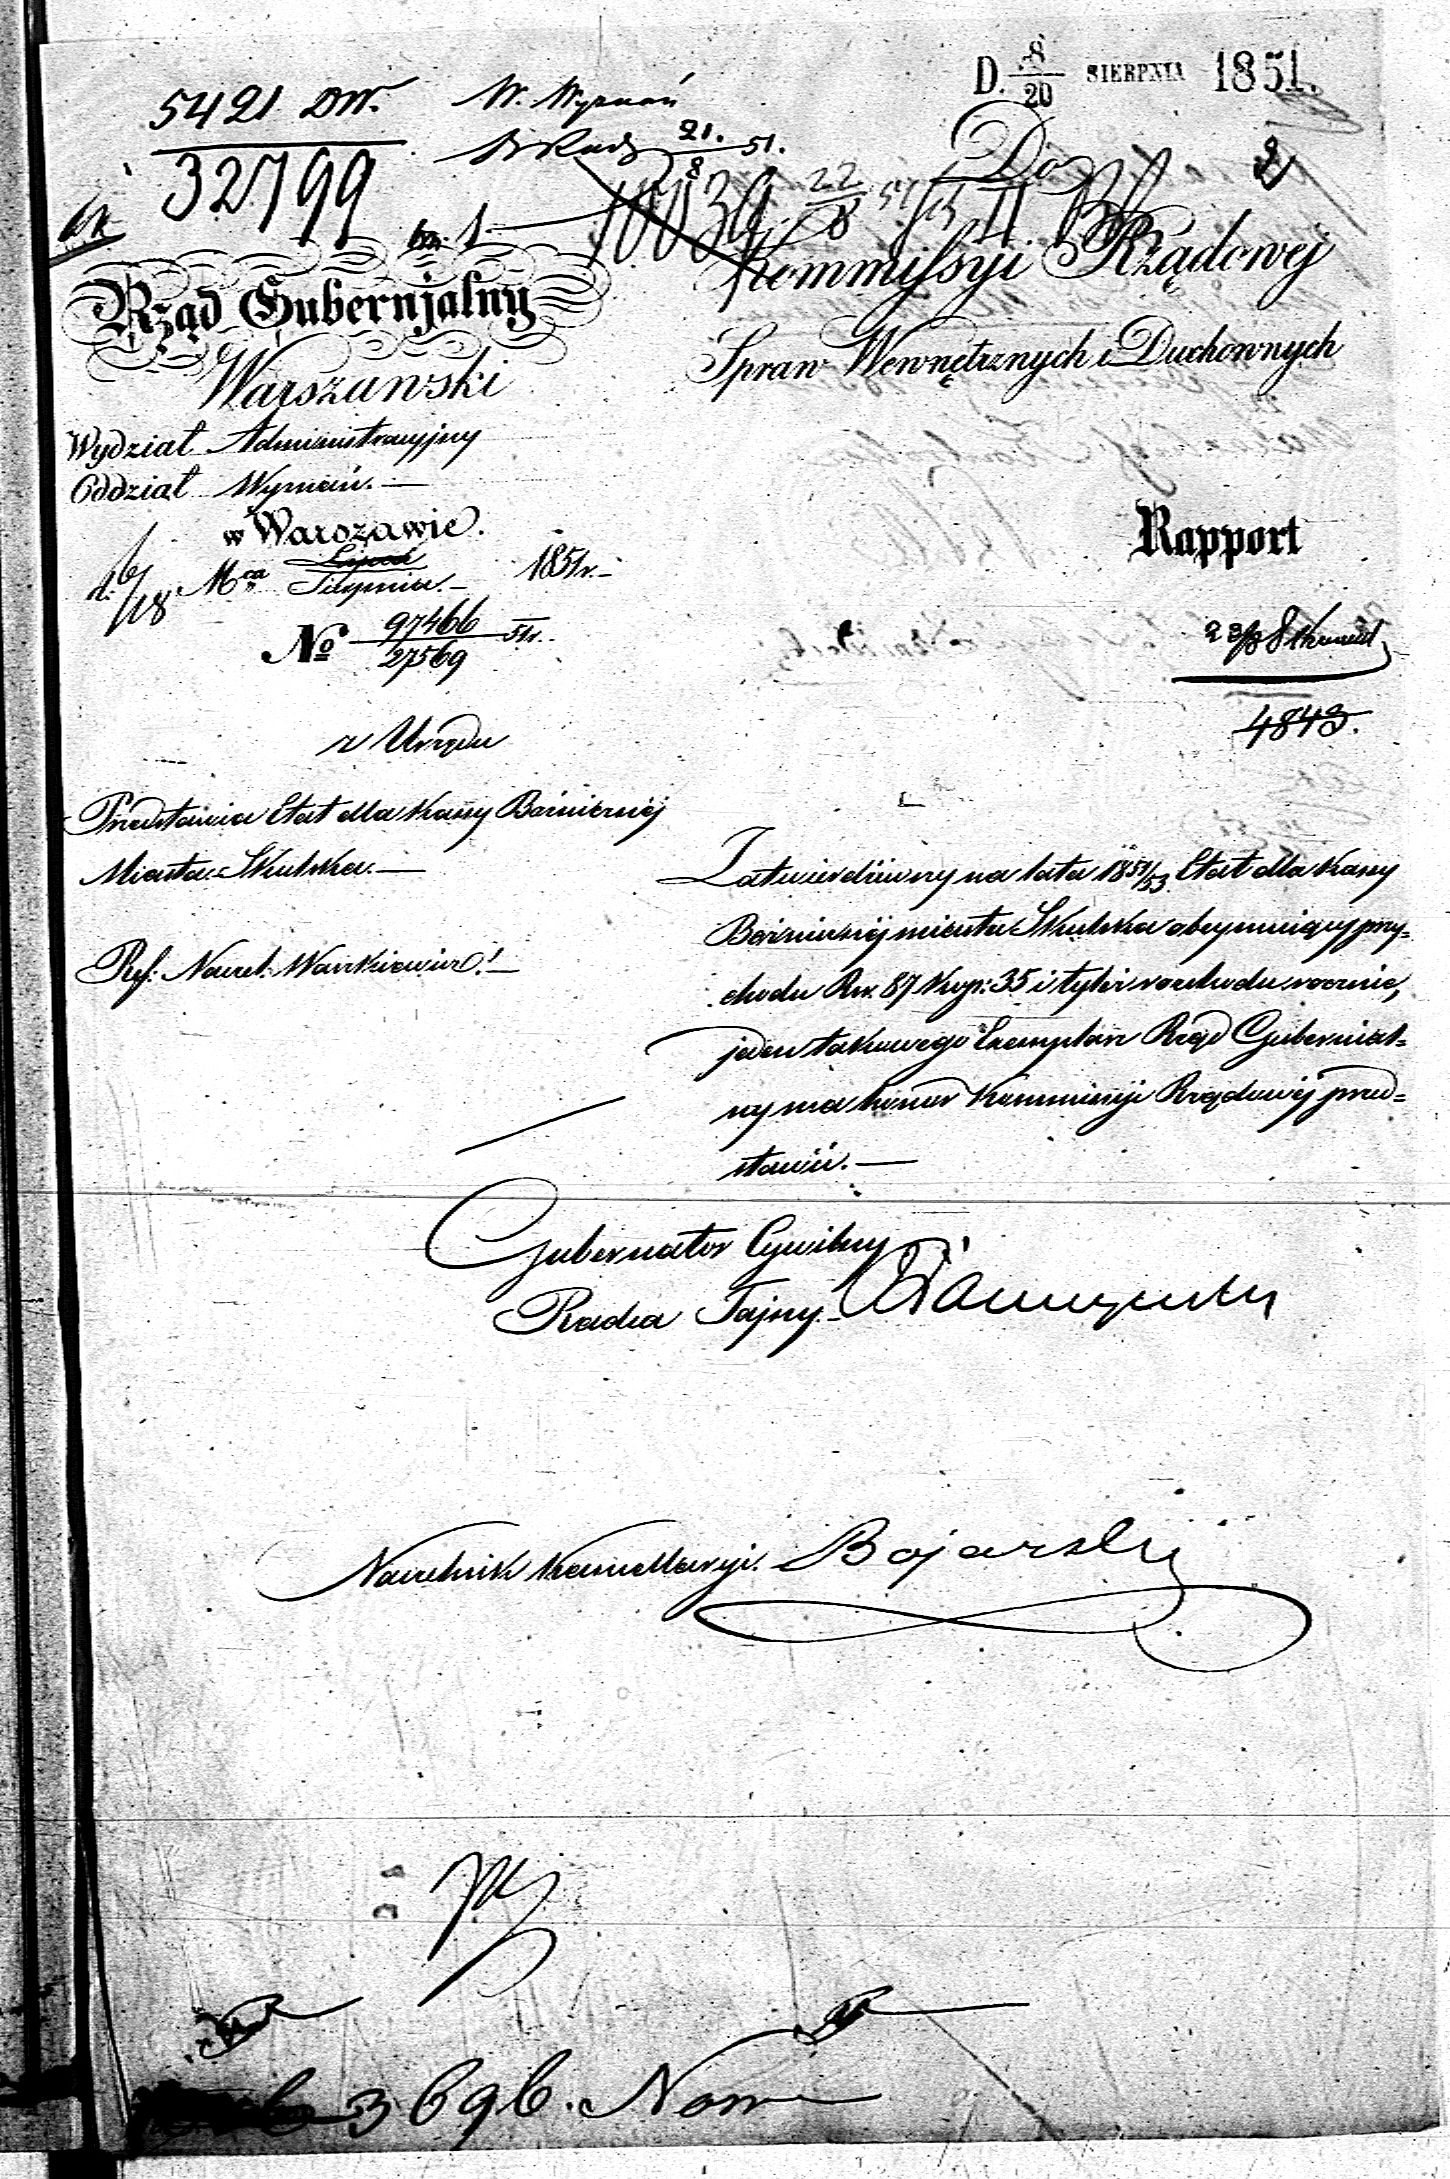 D. 8/20 SIERPNIA 1851.
5421 DW.
32799
W. Wyznań
21./8 51.
10039 22/8 51
2
Do
Kommissyi Rządowej
Spraw Wewnętrznych i Duchownych
Rząd Gubernjalny
Warszawski
Wydział Administracyjny
Oddział Wyznań. —
w Warszawie.
d. 6/18 Mca Lipca Sierpnia. — 1851 r. —
No 97466/27569 51r.
Rapport
23/8
4843.
z Urzędu
Przedstawia Etat dla Kassy Bożnicznéj
Miasta Skulska. —
Ref: Naczel: Wankiewicz. —
Zatwierdzony na lata 1851/53 Etat dla Kassy
Bożnicznéj miasta Skulska obejmujący przy=
chodu Rsr. 87 kop: 35 i tyleż rozchodu rocznie,
jeden takowego Exemplarz Rząd Gubernial=
ny ma honor Kommissyi Rządowéj przed=
stawić. —
Gubernator Cywilny
Radca Tajny. —
Naczelnik Kancellaryi. Bojarski
3696. Nowe